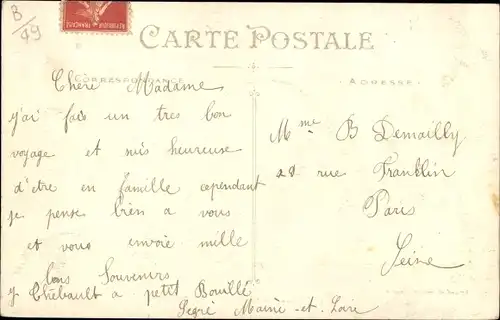 B/49
REPUBLIQUE FRANÇAISE
CARTE POSTALE
CORRESPONDANCE
ADRESSE
Chere Madame
j'ai fais un tres bon
voyage et suis heureuse
d'etre en famille cependant
je pense bien a vous
et vous envoie mille
bons Souvenirs
Y Thébault a petit Bouillé
Segré Maine-et-Loire
Mme B Demailly
28 rue Franklin
Paris
Seine